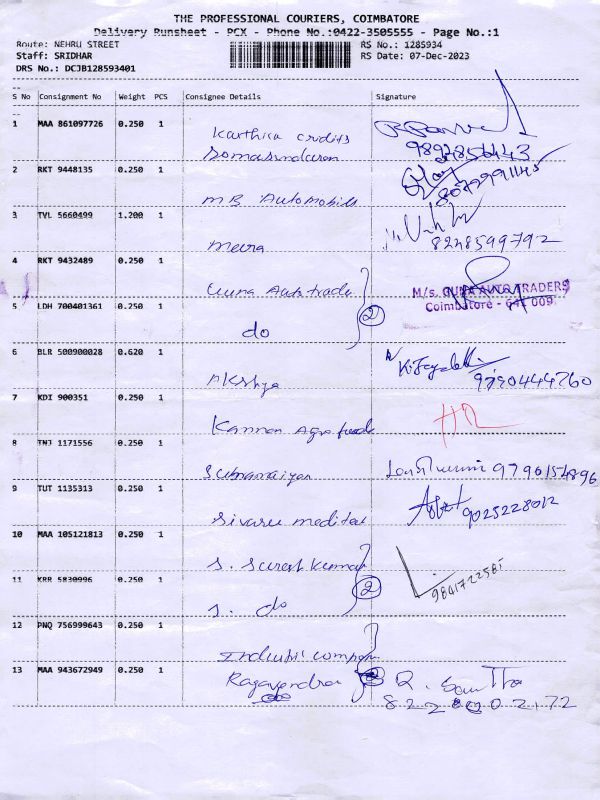 THE PROFESSIONAL COURIERS, COIMBATORE
Delivery Runsheet - PCX - Phone No.:0422-3505555 - Page No.:1
Route: NEHRU STREET RS No.: 1285934
Staff: SRIDHAR RS Date: 07-Dec-2023
DRS No.: DCJB128593401
S No Consignment No Weight PCS Consignee Details Signature
1 MAA 861097726 0.250 1 Karthica credits
Somasundaram
2 RKT 9448135 0.250 1
MB Automobils
3 TVL 5660499 1.200 1
8248599792
Meera
4 RKT 9432489 0.250 1
Guna Auto trade
M/s. GUNA AUTO TRADERS
5 LDH 700401361 0.250 1 2 Coimbatore - 641 009.
do
6 BLR 500900028 0.620 1
Akshya 9790444760
7 KDI 900351 0.250 1
Kannan Agro foods
8 TNJ 1171556 0.250 1
Subramaiyan 9790154896
9 TUT 1135313 0.250 1
9025228012
Sivaru medital
10 MAA 105121813 0.250 1
S. Suresh Kumar
11 KRR 5830996 0.250 1 2 9841722585
S. do
12 PNQ 756999643 0.250 1
13 MAA 943672949 0.250 1 Ragavendra R.
do